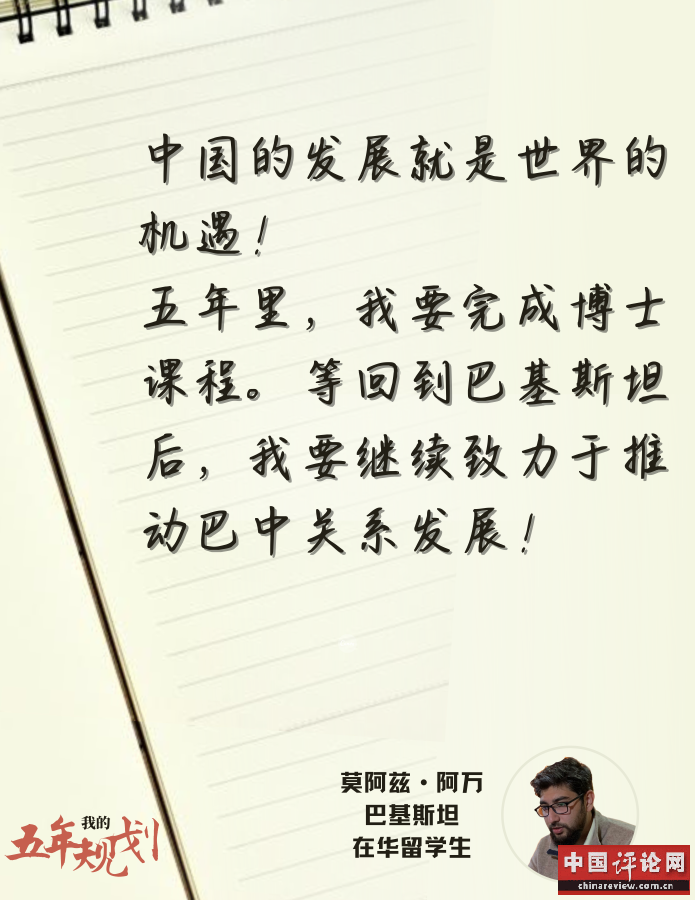 中国的发展就是世界的
机遇！
五年里，我要完成博士
课程。等回到巴基斯坦
后，我要继续致力于推
动巴中关系发展！
莫阿兹·阿万
巴基斯坦
在华留学生
我的
五年规划
中国评论网
chinareview.com.cn